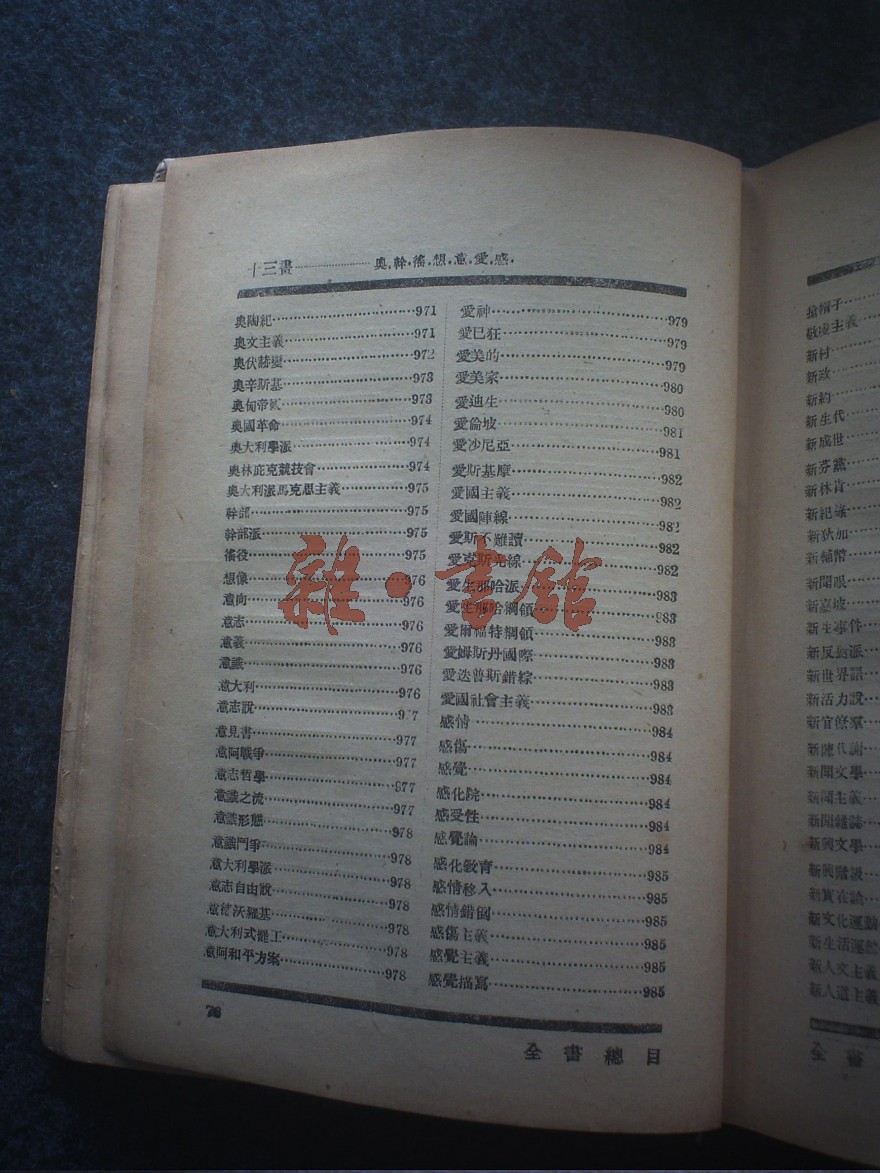 十三畫………………奧.幹.徭.想.意.愛.感.
奧陶紀………971
奧文主義………971
奧伏赫變………972
奧辛斯基………973
奧匈帝國………973
奧國革命………974
奧大利學派………974
奧林庇克競技會………974
奧大利派馬克思主義………975
幹部………975
幹部派………975
徭役………975
想像………976
意向………976
意志………976
意義………976
意識………976
意大利………976
意志說………977
意見書………977
意阿戰爭………977
意志哲學………977
意識之流………977
意識形態………978
意識鬥爭………978
意大利學派………978
意志自由說………978
意德沃羅基………978
意大利式罷工………978
意阿和平方案………978
愛神………979
愛已狂………979
愛美的………979
愛美家………980
愛迪生………980
愛倫坡………981
愛沙尼亞………981
愛斯基摩………982
愛國主義………982
愛國陣線………982
愛斯不難讀………982
愛克斯光線………982
愛生那哈派………983
愛生那哈綱領………983
愛爾福特綱領………983
愛姆斯丹國際………983
愛迭普斯錯綜………983
愛國社會主義………983
感情………984
感傷………984
感覺………984
感化院………984
感受性………984
感覺論………984
感化敎育………985
感情移入………985
感情錯倒………985
感傷主義………985
感覺主義………985
感覺描寫………985
76
全書總目
雜·書館
搶帽子
敬虔主義
新村
新政
新約
新生代
新成世
新芬黨
新林肯
新紀錄
新狄加
新輔幣
新聞眼
新嘉坡
新生事件
新反動派
新世界語
新活力說
新官僚羣
新陳代謝
新聞文學
新聞主義
新聞雜誌
新興文學
新興階級
新實在論
新文化運動
新生活運動
新人文主義
新人道主義
全書